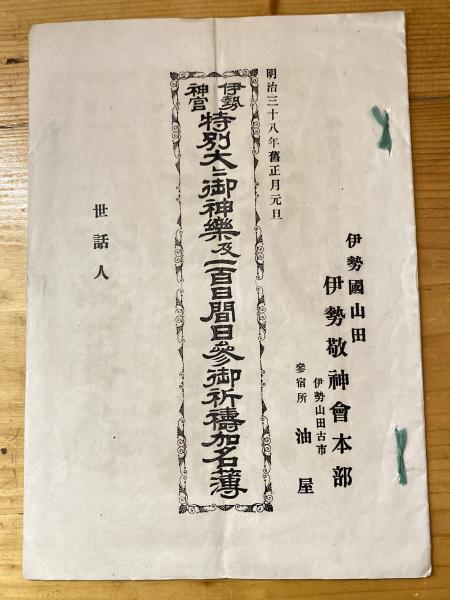 伊勢國山田
伊勢敬神會本部
伊勢山田古市
參宿所 油屋
明治三十八年舊正月元旦
伊勢神宮
特別大〻御神樂及一百日間日參御祈禱加名簿
世話人